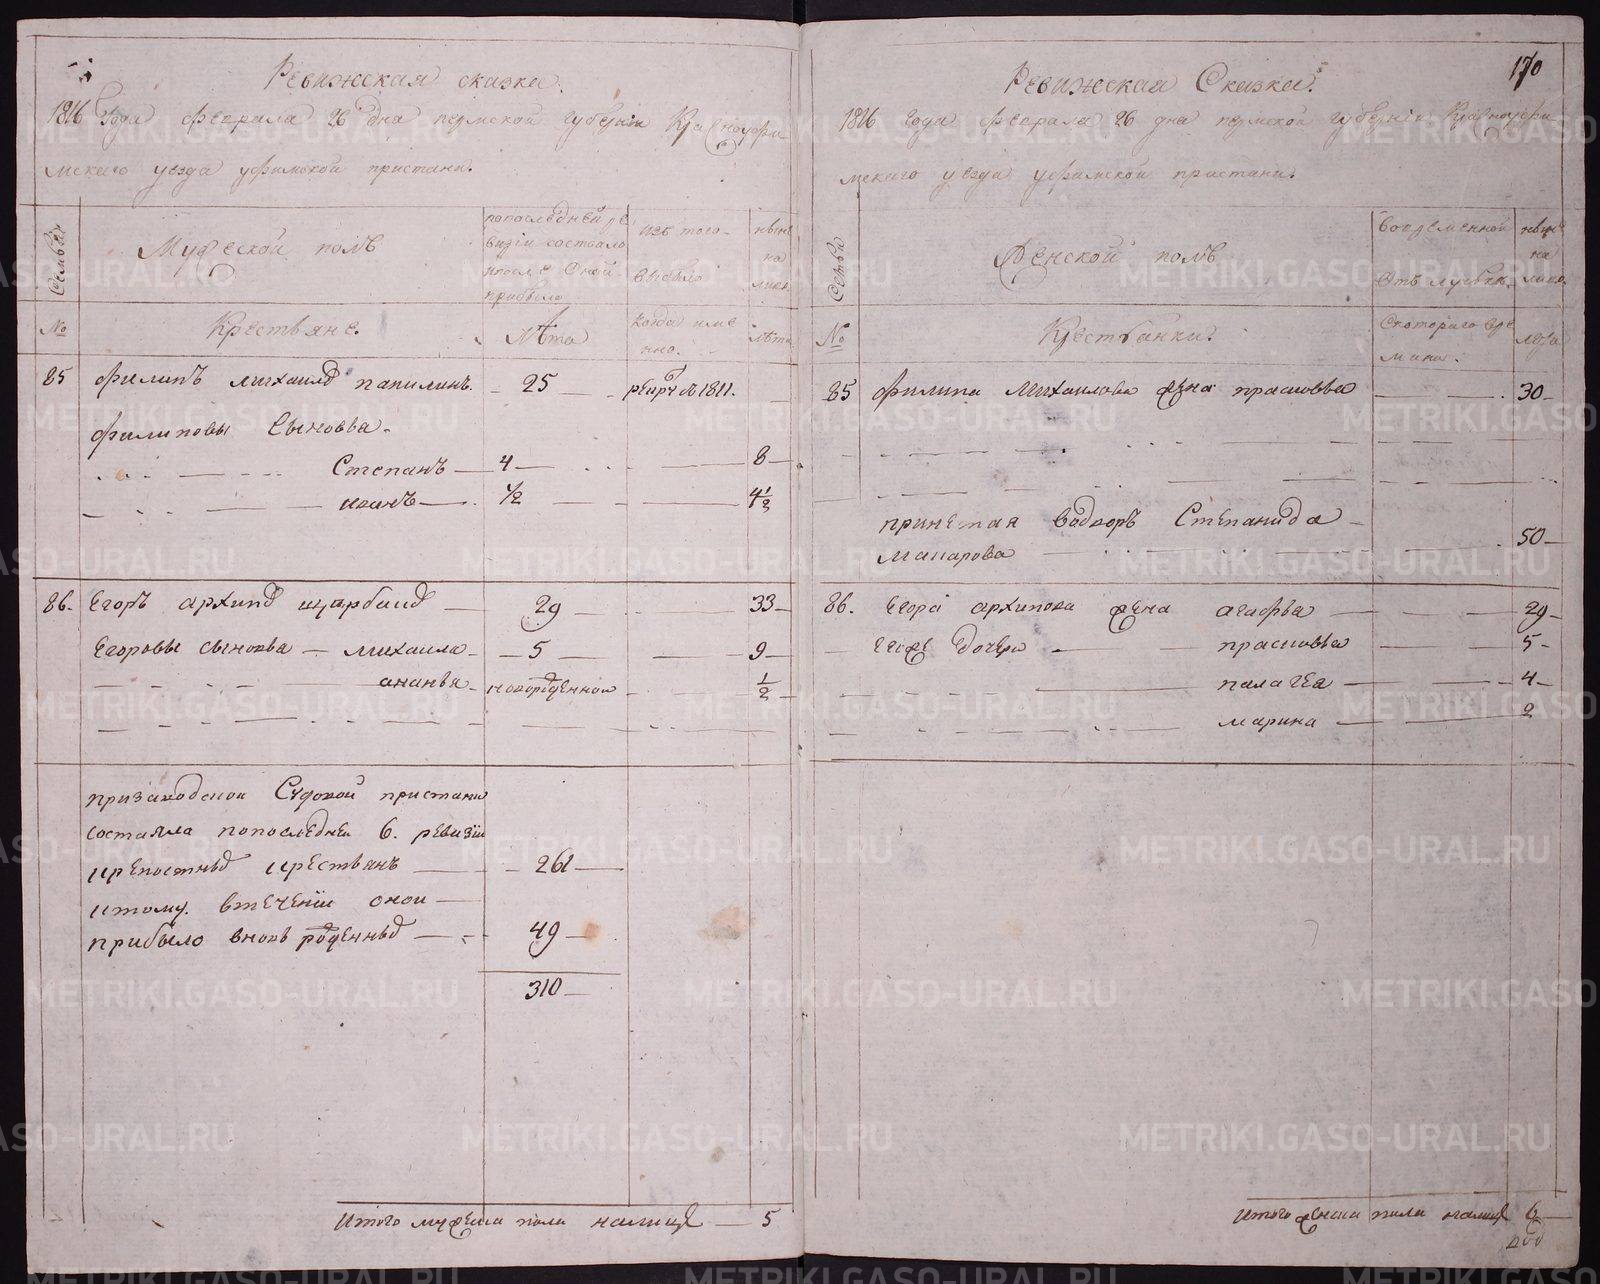 Ревижская сказка.
1816 Года февраля 26 дна пермской губернїи Красноуфи
мскаго уезда уфимской пристани.
Семьи
Мужеской полъ
попоследней ре
визїи состояло
ипосле оной
прибыло
изъ того
выбыло
ныне
на
лицо
№
Крестьяне.
Лѣта
когда име
нно.
лѣта
85 филипъ михаилов папилинъ. 25
филиповы Сыновья.
Степанъ 4 8
иванъ 1/2 4 1/2
86. Егоръ архипов щарбаков 29 33
Егоровы сыновья михаила 5 9
ананья новорожденной 1/2
призаводской Судовой пристани
состаяла попоследней 6. ревизїи
крепостных крестьянъ 261
ктому. втечении оной
прибыло вновь рожденных 49
310
Итого мужеска пола налице 5
170
Ревижская Сказка.
1816 года февраля 26 дна пермской губернїи Красноуфи
мскаго уезда уфимской пристани.
Семьи
Женской полъ
вовременной
отълучьке.
ныне
на
лицо.
№
Крестьянки.
Скотораго вре
мани.
лета
85 филипа Михаилова жена прасковья 30
принетая водворъ Степанида
макарова 50
86. Егора архипова жена агафья 29
Егоре дочери прасковья 5
палагея 4
марина 2
Итого женска пола налице 6
METRIKI.GASO-URAL.RU